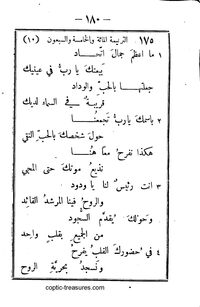 — ١٨٠ —
١٧٥ الترنيمة المائة والخامسة والسبعون (١٠)
١ ما اعظمَ جمالَ اتّحاد
يبينُكَ يا ربُّ في عينيك
جعلتَها بالحبِّ والوداد
قريبةً في السماء لديك
٢ باسمكَ يا ربُّ تجمعنا
حولَ شخصكَ بالحبِّ التي
هكذا نفرحُ معًا هُنا
نذيعُ موتكَ حتى المجي
٣ انت رئيسٌ لنا يا ودود
والروحُ فينا المرشدُ القائد
وحولكَ يُقدَّمُ السجود
من الجميعِ بقلبٍ واحد
٤ في حضوركَ القلبُ يفرحُ
ونسجدُ بحريّةِ الروح
coptic-treasures.com